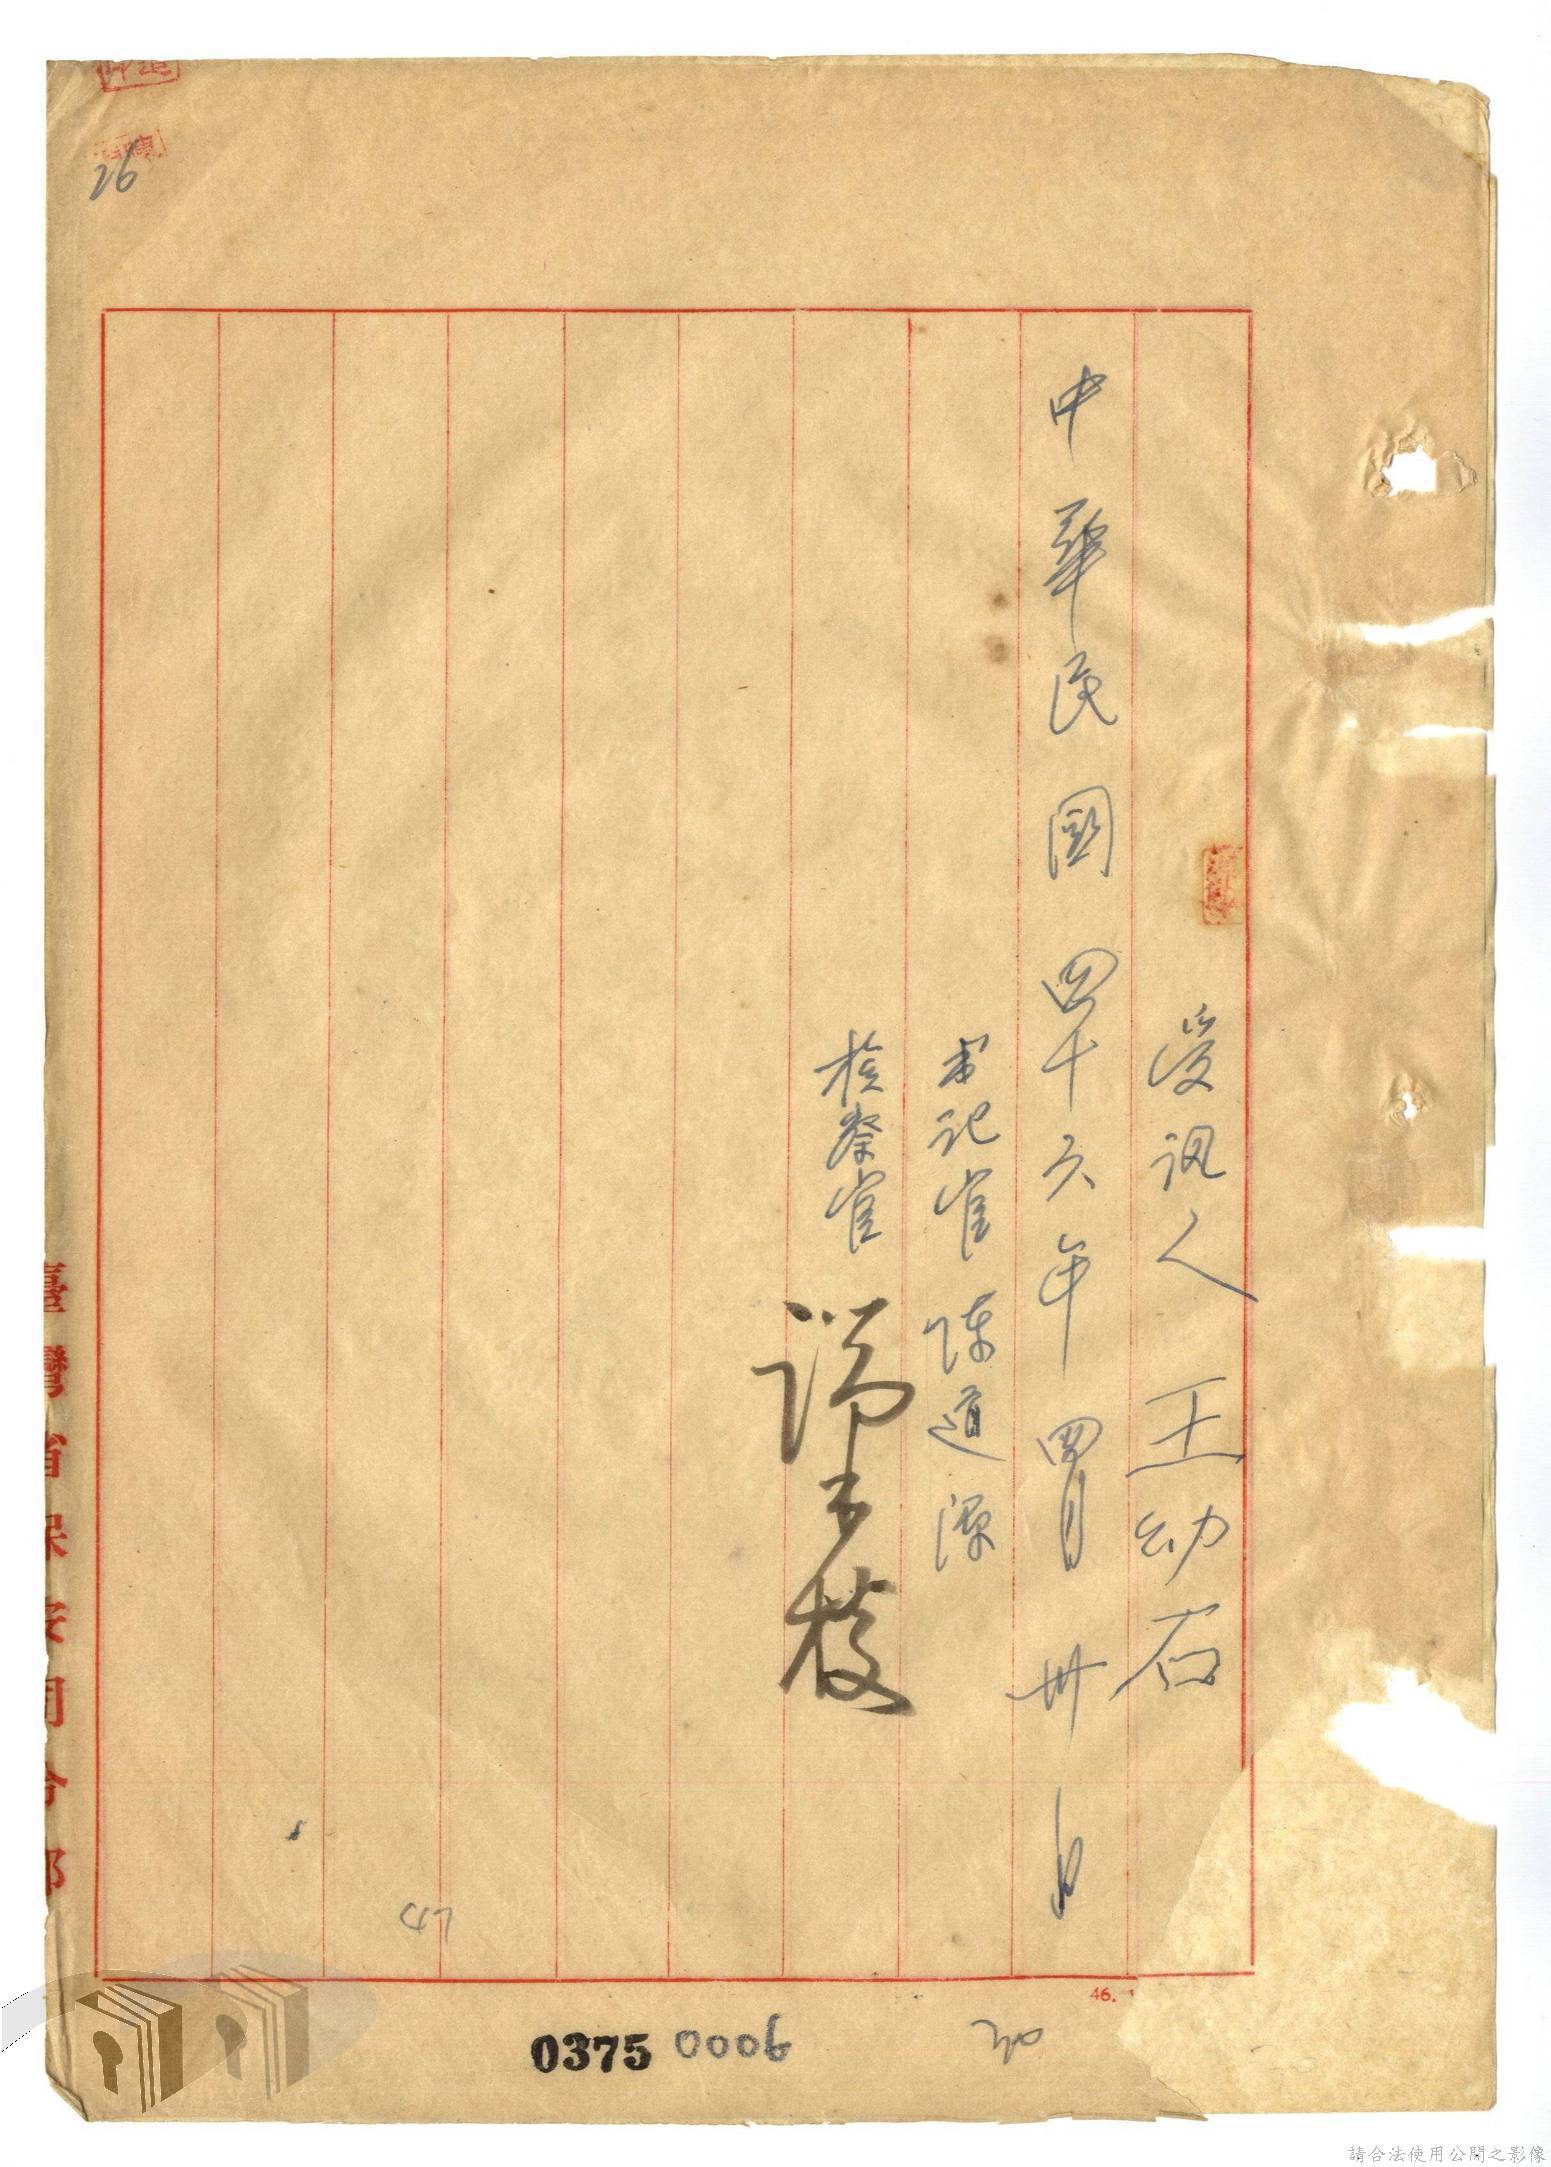 26
受訊人 王幼石
中華民國四十六年四月卅日
书记官 陈道源
檢察官
臺灣省保安司令部
46. 1
0375 0006
請合法使用公開之影像